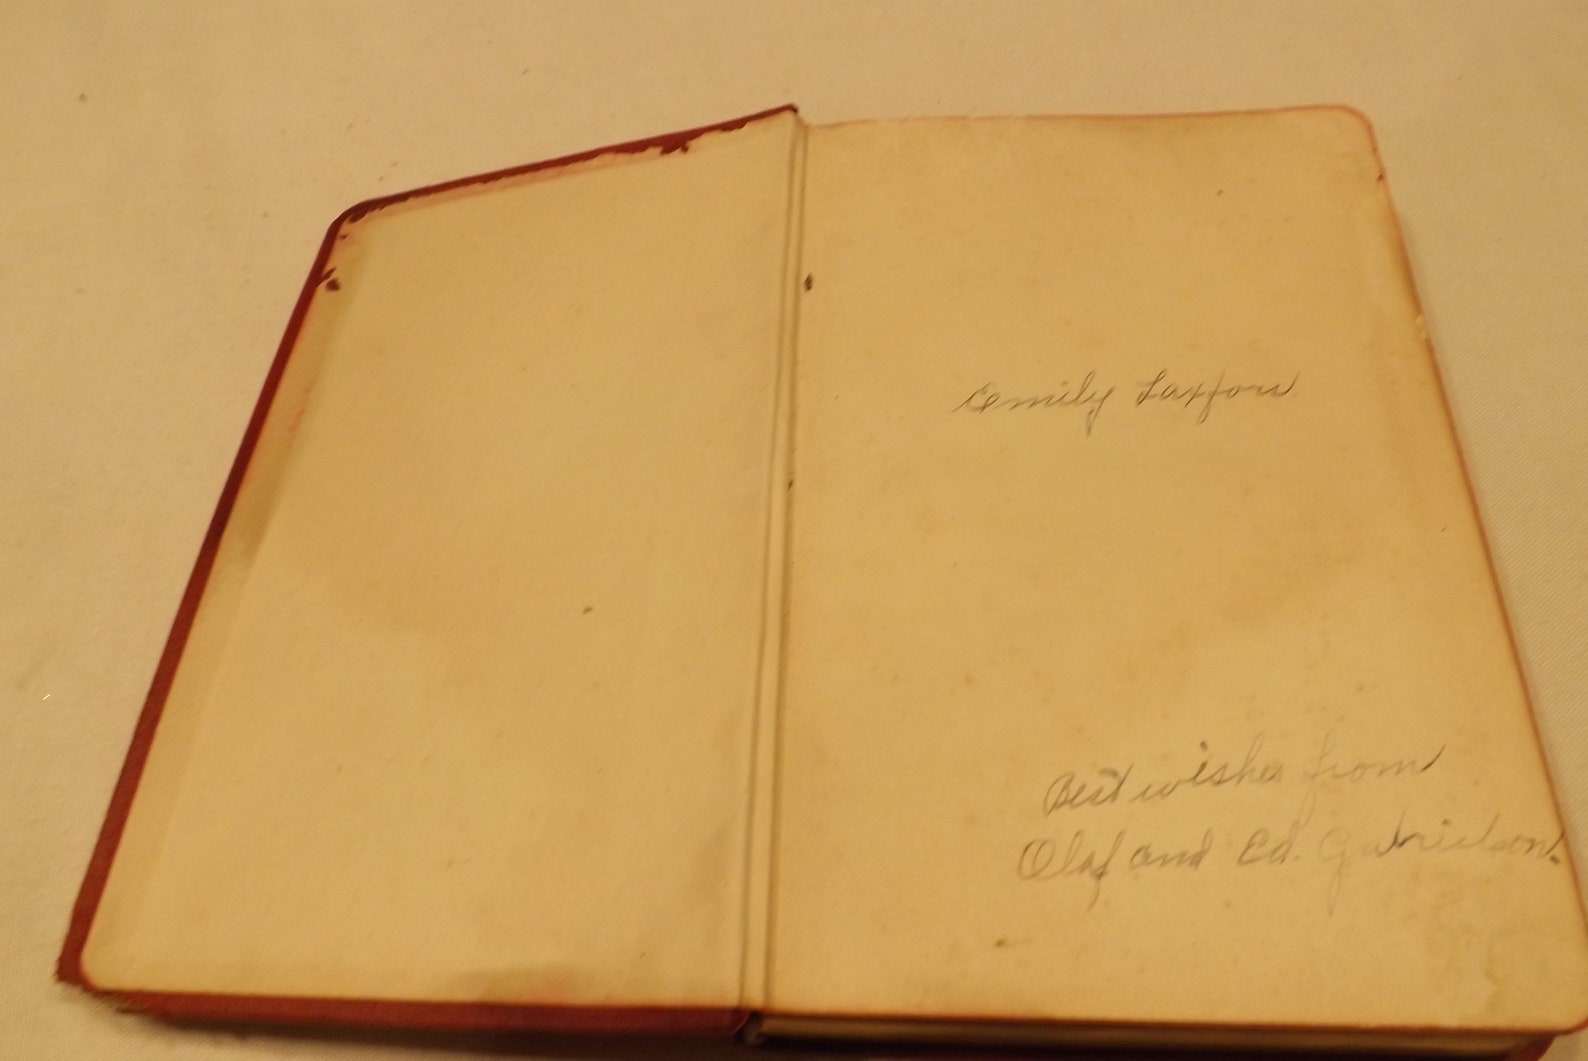 Emily Laxfors
Best wishes from
Olaf and Ed. Gabrielson.